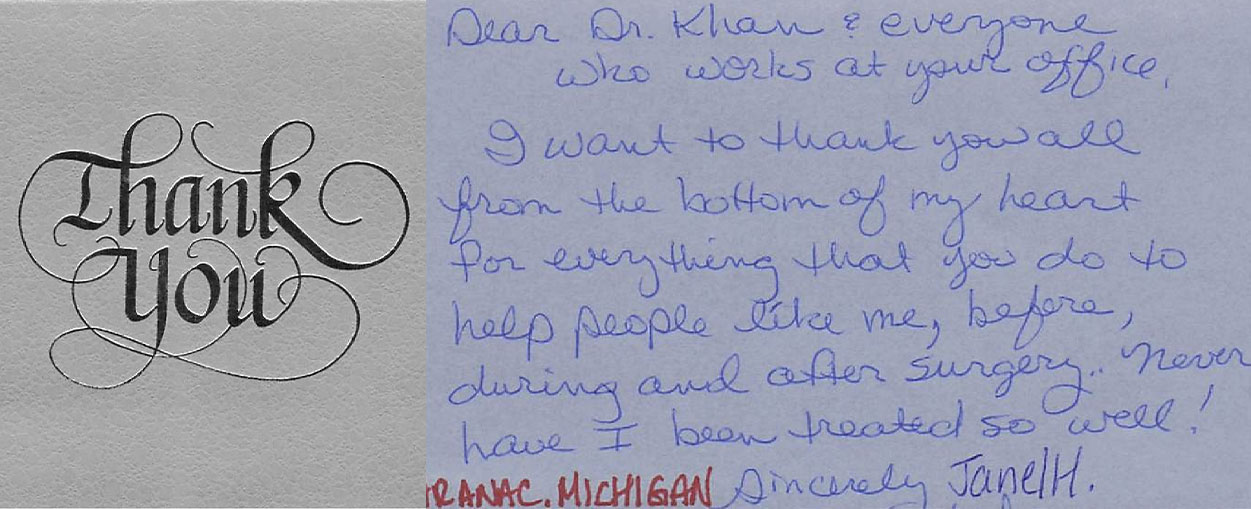 Thank
You
Dear Dr. Khan & everyone
who works at your office,
I want to thank you all
from the bottom of my heart
for everything that you do to
help people like me, before,
during and after surgery.. Never
have I been treated so well!
RANAC. MICHIGAN Sincerely Janel H.